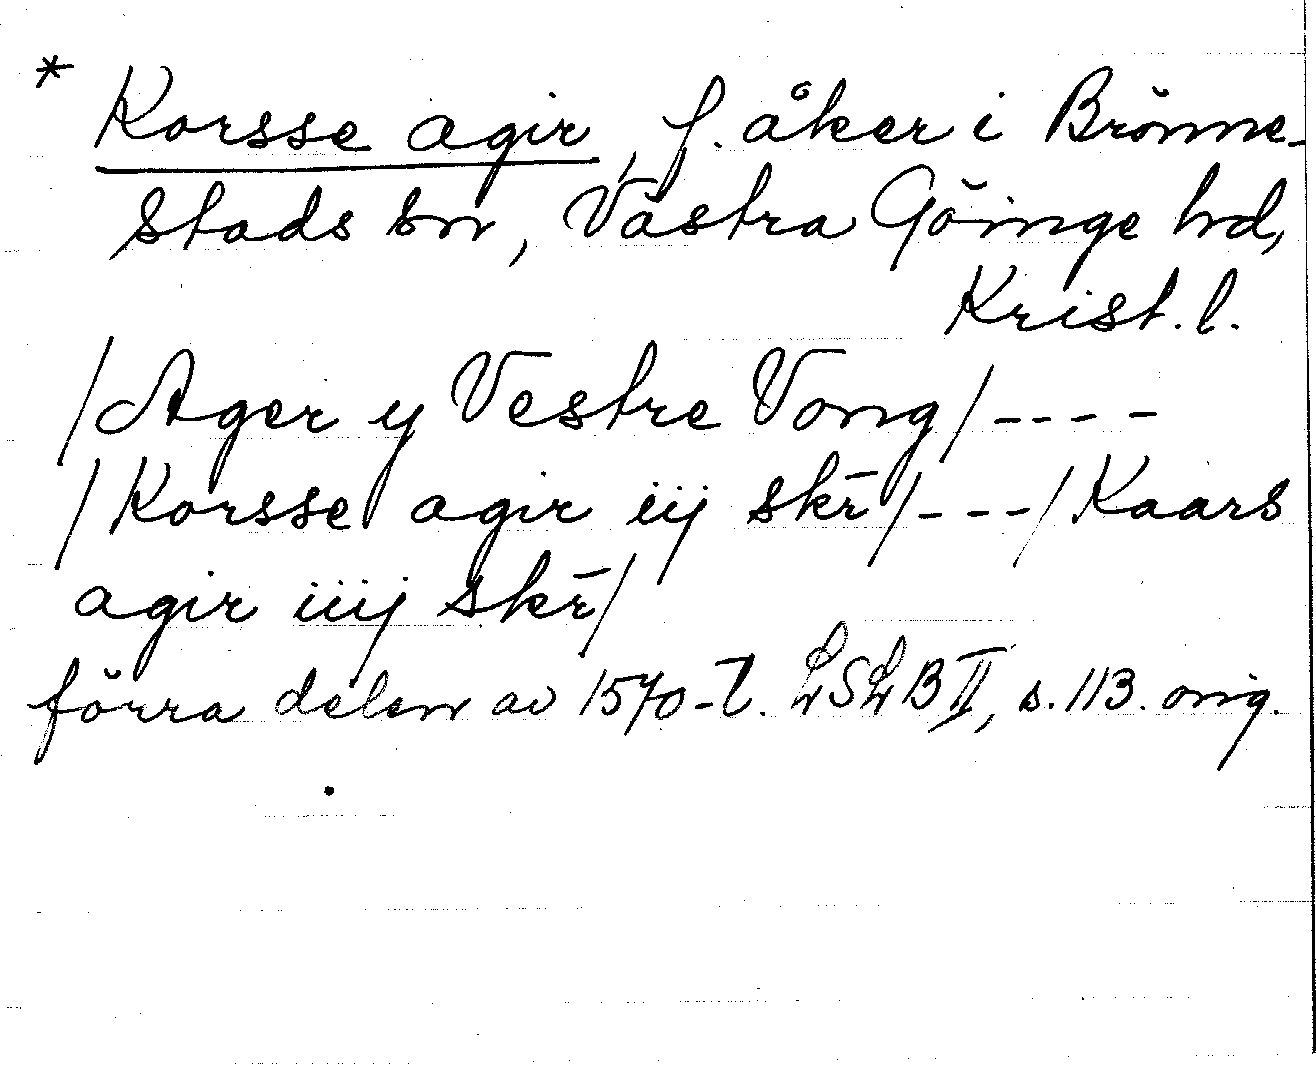 * Korsse agir, f. åker i Brönne-
stads sn, Västra Göinge hd,
Krist. l.
/Ager y Vestre Vong/----
/Korsse agir iij skr̄/---/Kaars
agir iiij skr̄/
förra delen av 1570-t. LSLB II, s. 113. orig.